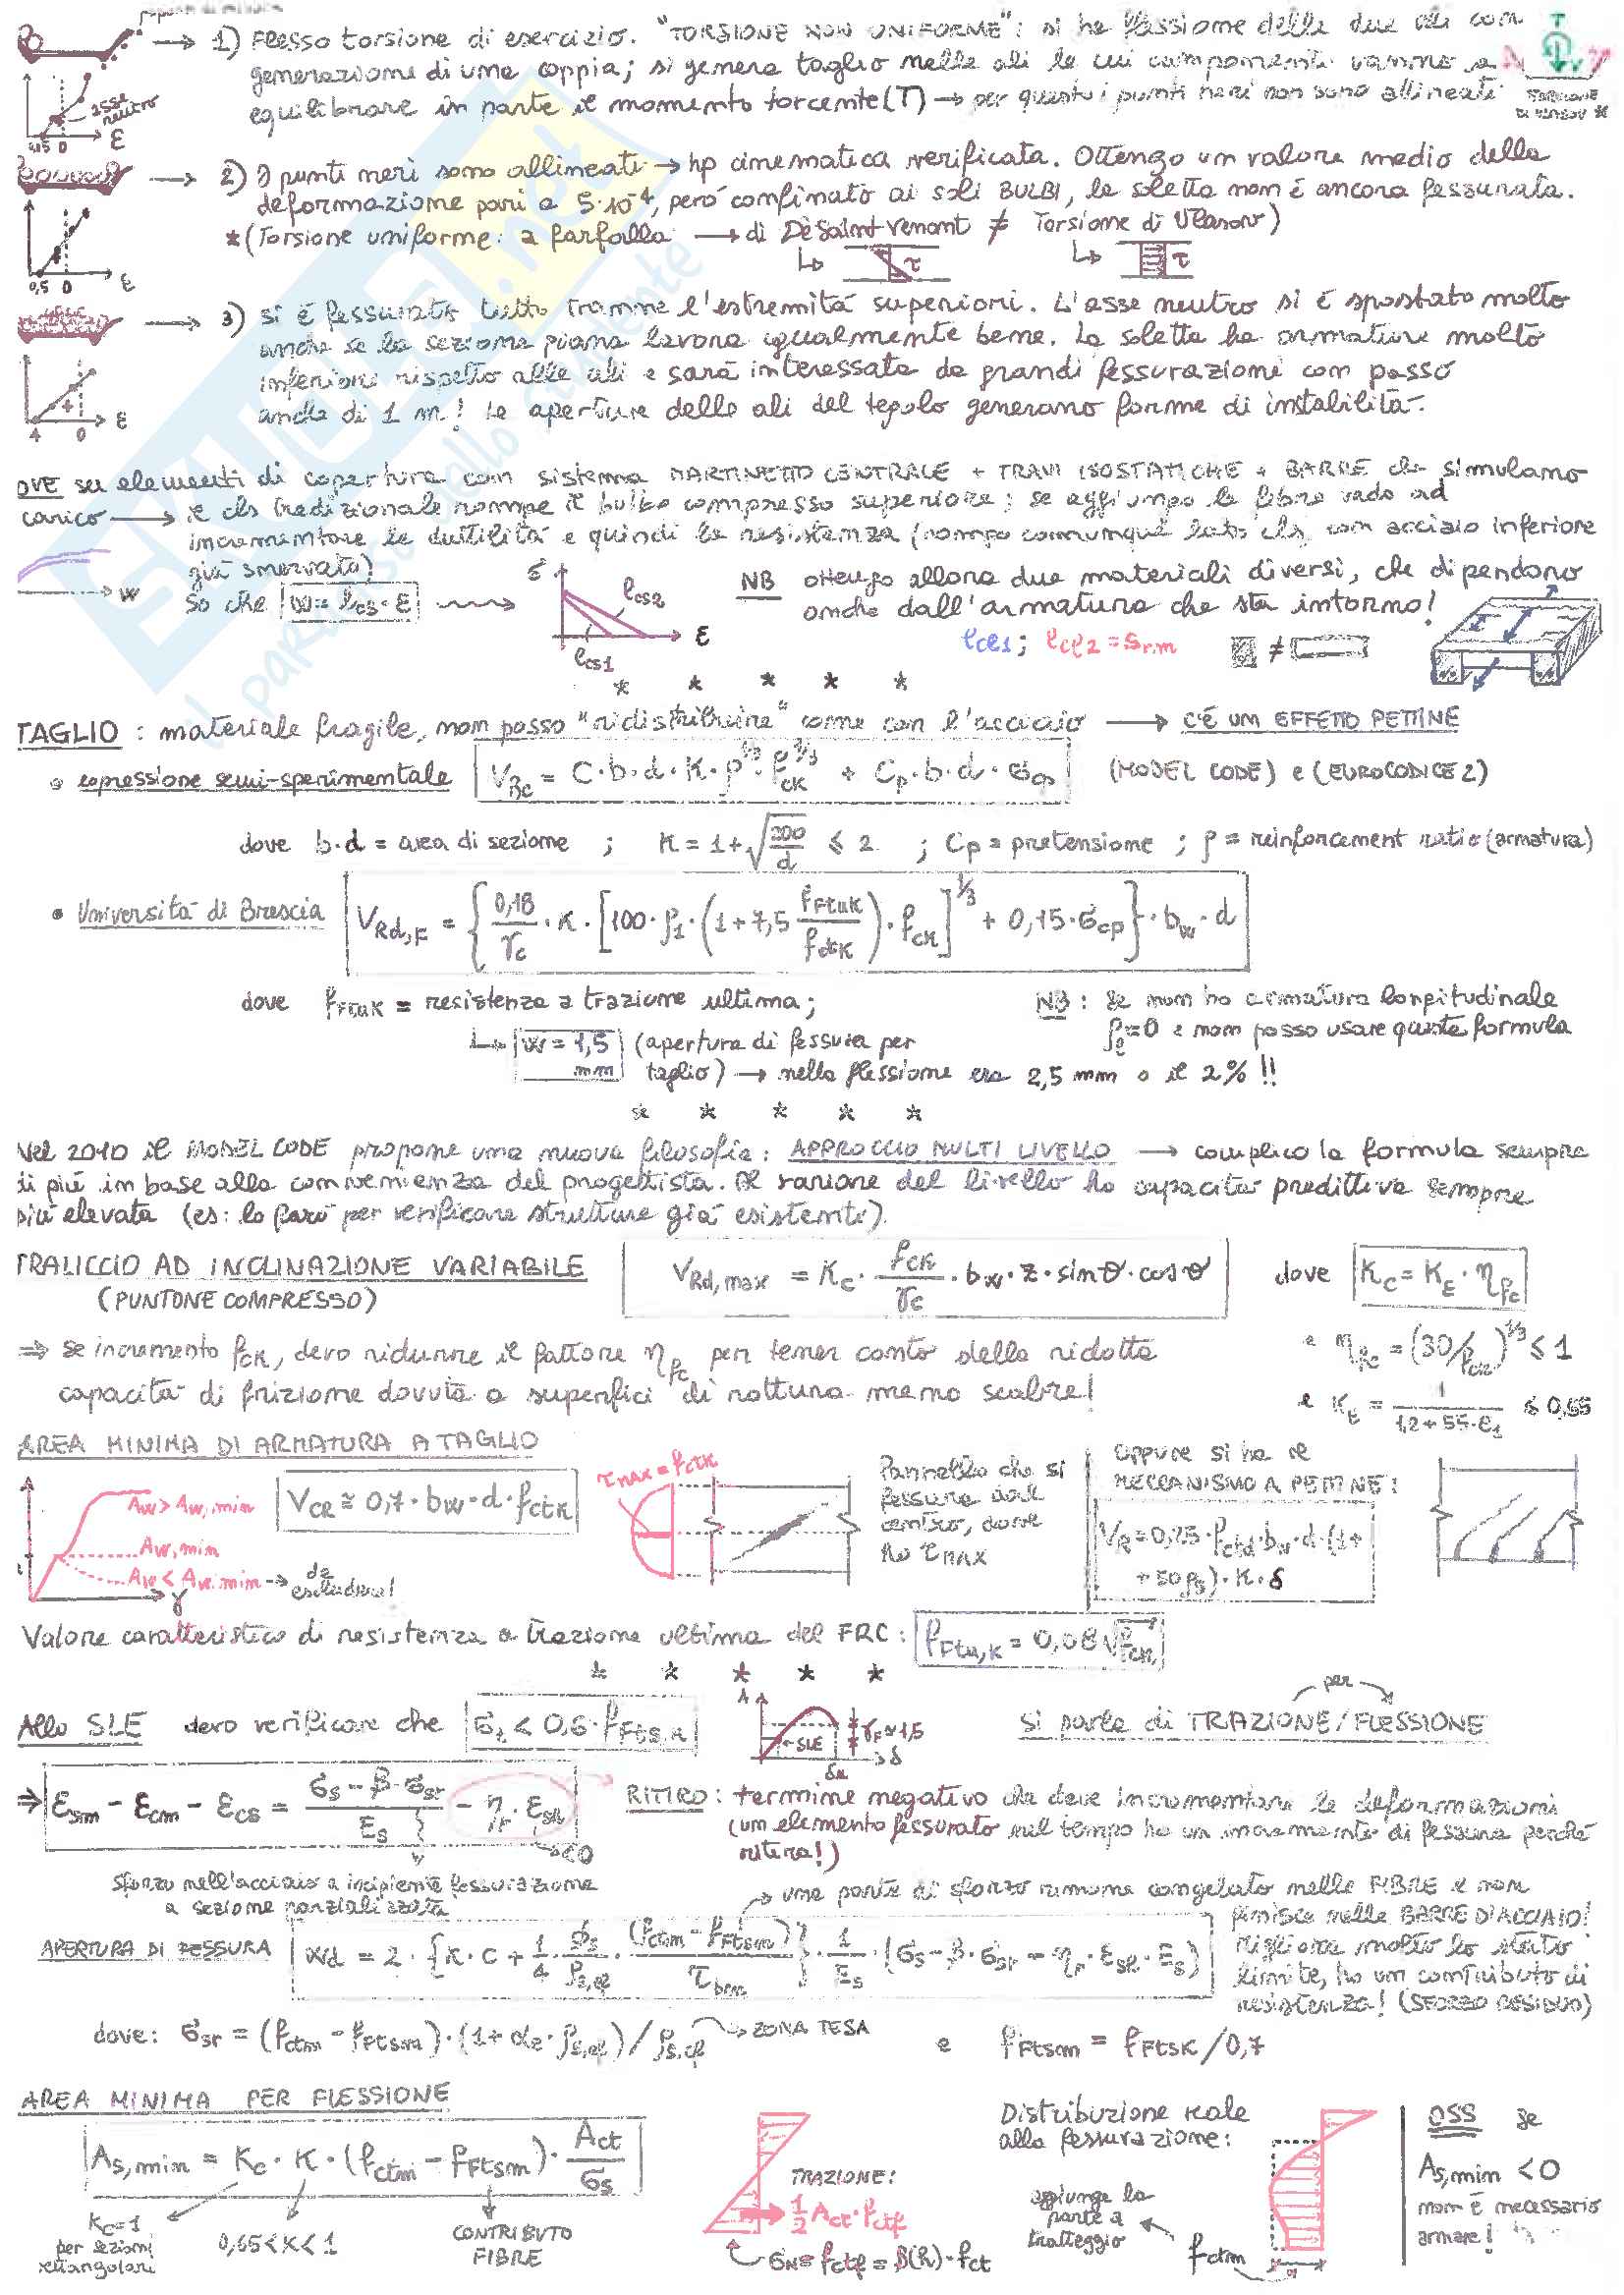 → 1) Flesso torsione di esercizio. "TORSIONE NON UNIFORME": si ha flessione delle due ali con
generazione di una coppia; si genera taglio nelle ali le cui componenti vanno a
equilibrare in parte il momento torcente (T) → per questo i punti neri non sono allineati
T
V
TORSIONE
DI VLASOV *
asse
neutro
0,15 0 ε
→ 2) I punti neri sono allineati → hp cinematica verificata. Ottengo un valore medio della
deformazione pari a 5·10⁻⁴, però confinato ai soli BULBI, la soletta non è ancora fessurata.
*(Torsione uniforme: a farfalla → di De Saint Venant ≠ Torsione di Vlasov)
τ τ
0,5 0 ε
→ 3) si è fessurato tutto tranne l'estremità superiori. L'asse neutro si è spostato molto
anche se la sezione piana lavora ugualmente bene. La soletta ha armature molto
inferiori rispetto alle ali e sarà interessata da grandi fessurazioni con passo
anche di 1 m! Le aperture delle ali del tegolo generano forme di instabilità.
4 0 ε
OVE su elementi di copertura con sistema MARTINETTO CENTRALE + TRAVI ISOSTATICHE + BARRE che simulano
carico → il cls tradizionale rompe il bulbo compresso superiore; se aggiungo le fibre vado ad
incrementare la duttilità e quindi la resistenza (rompo comunque lato cls, con acciaio inferiore
già snervato)
w
So che w = lcs · ε
σ
lcs2
lcs1
ε
NB ottengo allora due materiali diversi, che dipendono
anche dall'armatura che sta intorno!
lcs1 ; lcs2 = Sr.m ≠
* * * * *
TAGLIO : materiale fragile, non posso "ridistribuire" come con l'acciaio → C'È UN EFFETTO PETTINE
• espressione semi-sperimentale VRc = C·b·d·K·ρ^1/3·fck^1/3 + Cp·b·d·σcp (MODEL CODE) e (EUROCODICE 2)
dove b·d = area di sezione ; K = 1+√(200/d) ≤ 2 ; Cp = pretensione ; ρ = reinforcement ratio (armatura)
• Università di Brescia VRd,F = {0,18/γc · K · [100·ρ1·(1+7,5 fFtuk/fctk)·fck]^1/3 + 0,15·σcp}·bw·d
dove fFtuk = resistenza a trazione ultima;
↳ w = 1,5 mm (apertura di fessura per
taglio) → nella flessione era 2,5 mm o il 2% !!
NB : se non ho armatura longitudinale
ρl=0 e non posso usare questa formula
* * * * *
Nel 2010 il MODEL CODE propone una nuova filosofia: APPROCCIO MULTI LIVELLO → complico la formula sempre
di più in base alla convenienza del progettista. Al variare del livello ho capacità predittiva sempre
più elevata (es: lo farò per verificare strutture già esistenti).
TRALICCIO AD INCLINAZIONE VARIABILE
(PUNTONE COMPRESSO)
VRd,max = Kc · fck/γc · bw·z·sinθ·cosθ dove Kc = Kε · ηfc
⇒ se incremento fck, devo ridurre il fattore ηfc per tener conto della ridotta
capacità di frizione dovuta a superfici di rottura meno scabre!
e ηfc = (30/fck)^1/3 ≤ 1
e Kε = 1/(1,2+55·ε1) ≤ 0,65
AREA MINIMA DI ARMATURA A TAGLIO
Aw > Aw,min
Aw,min
Aw < Aw,min → da
escludere!
γ
VCR ≅ 0,7·bw·d·fctk
τMAX = fctk
Pannello che si
fessura dal
centro, dove
ho τMAX
oppure si ha il
MECCANISMO A PETTINE:
VR=0,25·fctd·bw·d·(1+
+50ρs)·K·δ
Valore caratteristico di resistenza a trazione ultima del FRC: fFtu,k = 0,08√fck
* * * * *
Allo SLE devo verificare che σt < 0,6·fFts,k
SLE
γF≃1,5
δ
δu
per
si parla di TRAZIONE/FLESSIONE
⇒ εsm − εcm − εcs = (σs − β·σsr)/Es − ηr·εsh
<0
RITIRO: termine negativo che deve incrementare le deformazioni
(un elemento fessurato nel tempo ha un incremento di fessura perché
ritira!)
sforzo nell'acciaio a incipiente fessurazione
a sezione parzializzata
→ una parte di sforzo rimane congelato nelle FIBRE e non
finisce nelle BARRE D'ACCIAIO!
Migliora molto lo stato
limite, ho un contributo di
resistenza! (SFORZO RESIDUO)
APERTURA DI FESSURA wd = 2·{K·c + 1/4·Φs/ρs,ef·(fctm − fFtsm)/τbm}·1/Es·(σs − β·σsr − ηr·εsh·Es)
dove: σsr = (fctm − fFtsm)·(1+αe·ρs,ef)/ρs,ef → ZONA TESA e fFtsm = fFtsk/0,7
AREA MINIMA PER FLESSIONE
As,min = Kc · K · (fctm − fFtsm) · Act/σs
Kc=1
per sezioni
rettangolari
0,65<K<1
CONTRIBUTO
FIBRE
TRAZIONE:
1/2 Act·fctf
σN = fctf = β(h)·fct
Distribuzione reale
alla fessurazione:
aggiungo la
parte a
tratteggio
fctm
OSS se
As,min <0
non è necessario
armare!